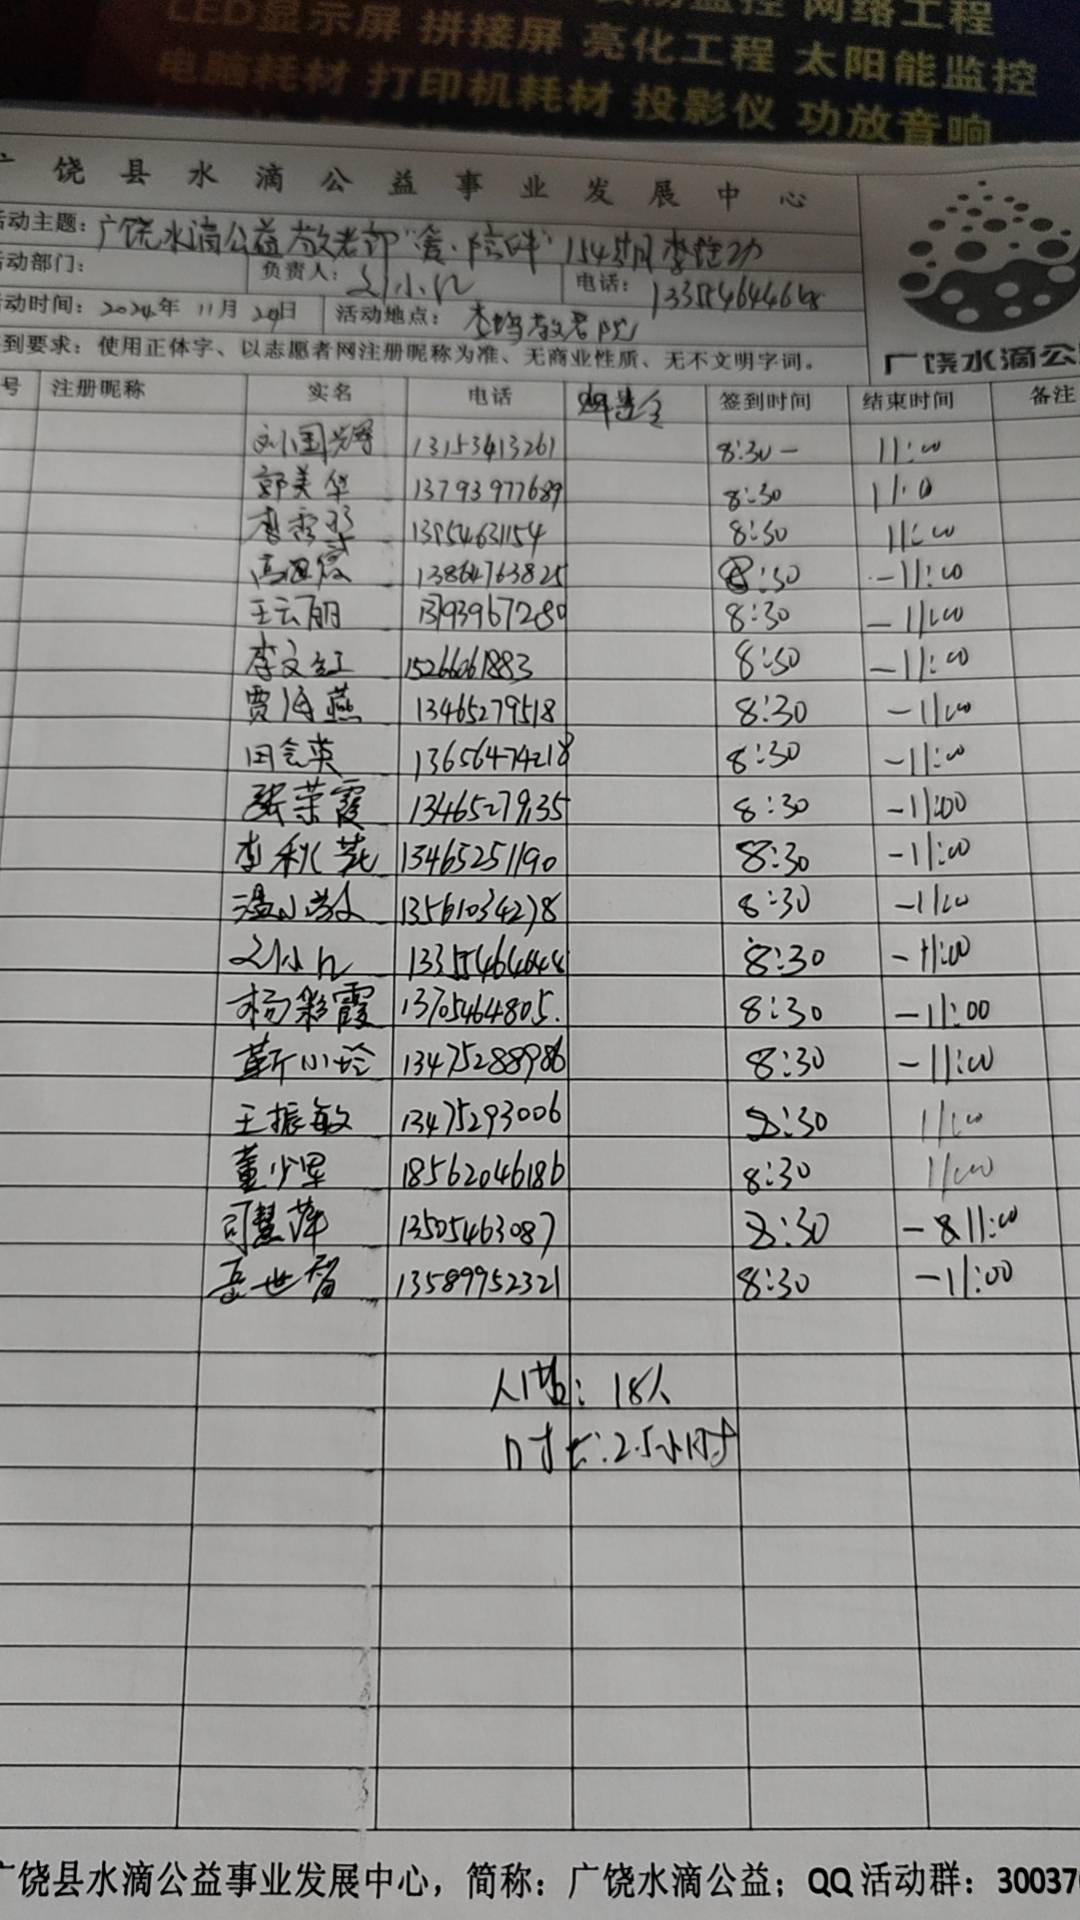 网络工程
LED显示屏 拼接屏 亮化工程 太阳能监控
电脑耗材 打印机耗材 投影仪 功放音响
饶县水滴公益事业发展中心
活动主题：广饶水滴公益敬老部"爱·陪伴"154期
活动部门： 负责人：刘小 电话：
活动时间：2024年 11月 29日 活动地点：李鹊敬老院
到要求：使用正体字、以志愿者网注册昵称为准、无商业性质、无不文明字词。
广饶水滴公
号 注册昵称 实名 电话 签到时间 结束时间 备注
刘国 13153413261 8:30- 11:00
郭美华 13793977689 8:30 11:0
李秀 13954631154 8:30 11:00
高 13864763825 8:30 -11:00
王云丽 13793967280 8:30 -11:00
李文红 15266061883 8:30 -11:00
贾海燕 13465279518 8:30 -11:00
田会英 13656474218 8:30 -11:00
张荣霞 13465279135 8:30 -11:00
李秋花 13465251190 8:30 -11:00
温小 13561034278 8:30 -11:00
刘小 8:30 -11:00
杨彩霞 13705464805. 8:30 -11:00
靳小玲 13475288986 8:30 -11:00
王振敏 13475293006 8:30 11:00
董少军 18562046186 8:30 11:00
司慧萍 13505463087 8:30 -11:00
岳世智 13589952321 8:30 -11:00
人数：18人
时长：2.5小时
广饶县水滴公益事业发展中心，简称：广饶水滴公益；QQ活动群：30037